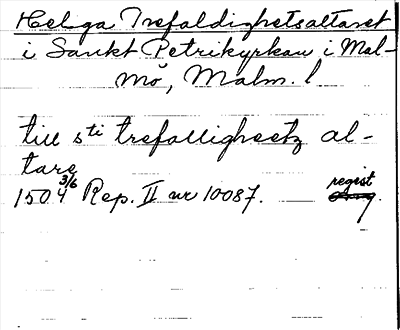 Helga Trefaldighetsaltaret
i Sankt Petrikyrkan i Mal-
mö, Malm. l
till sti trefalligheetz al-
tare
1504 3/6 Rep. II nr 10087. regist